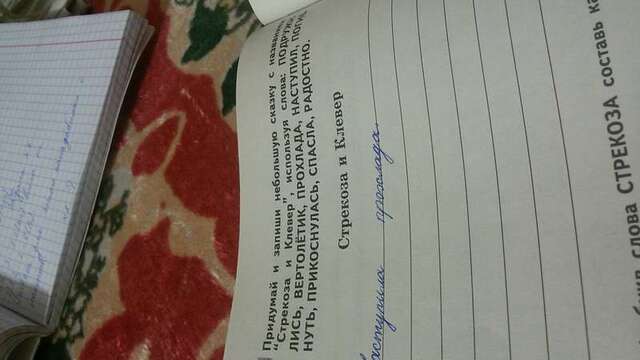 Придумай и запиши небольшую сказку с названи
"Стрекоза и Клевер", используя слова: ПОДРУЖИ
ЛИСЬ, ВЕРТОЛЁТИК, ПРОХЛАДА, НАСТУПИЛ, ПОГИБ
НУТЬ, ПРИКОСНУЛАСЬ, СПАСЛА, РАДОСТНО.
Стрекоза и Клевер
аступила прохлада.
букв слова СТРЕКОЗА составь ка